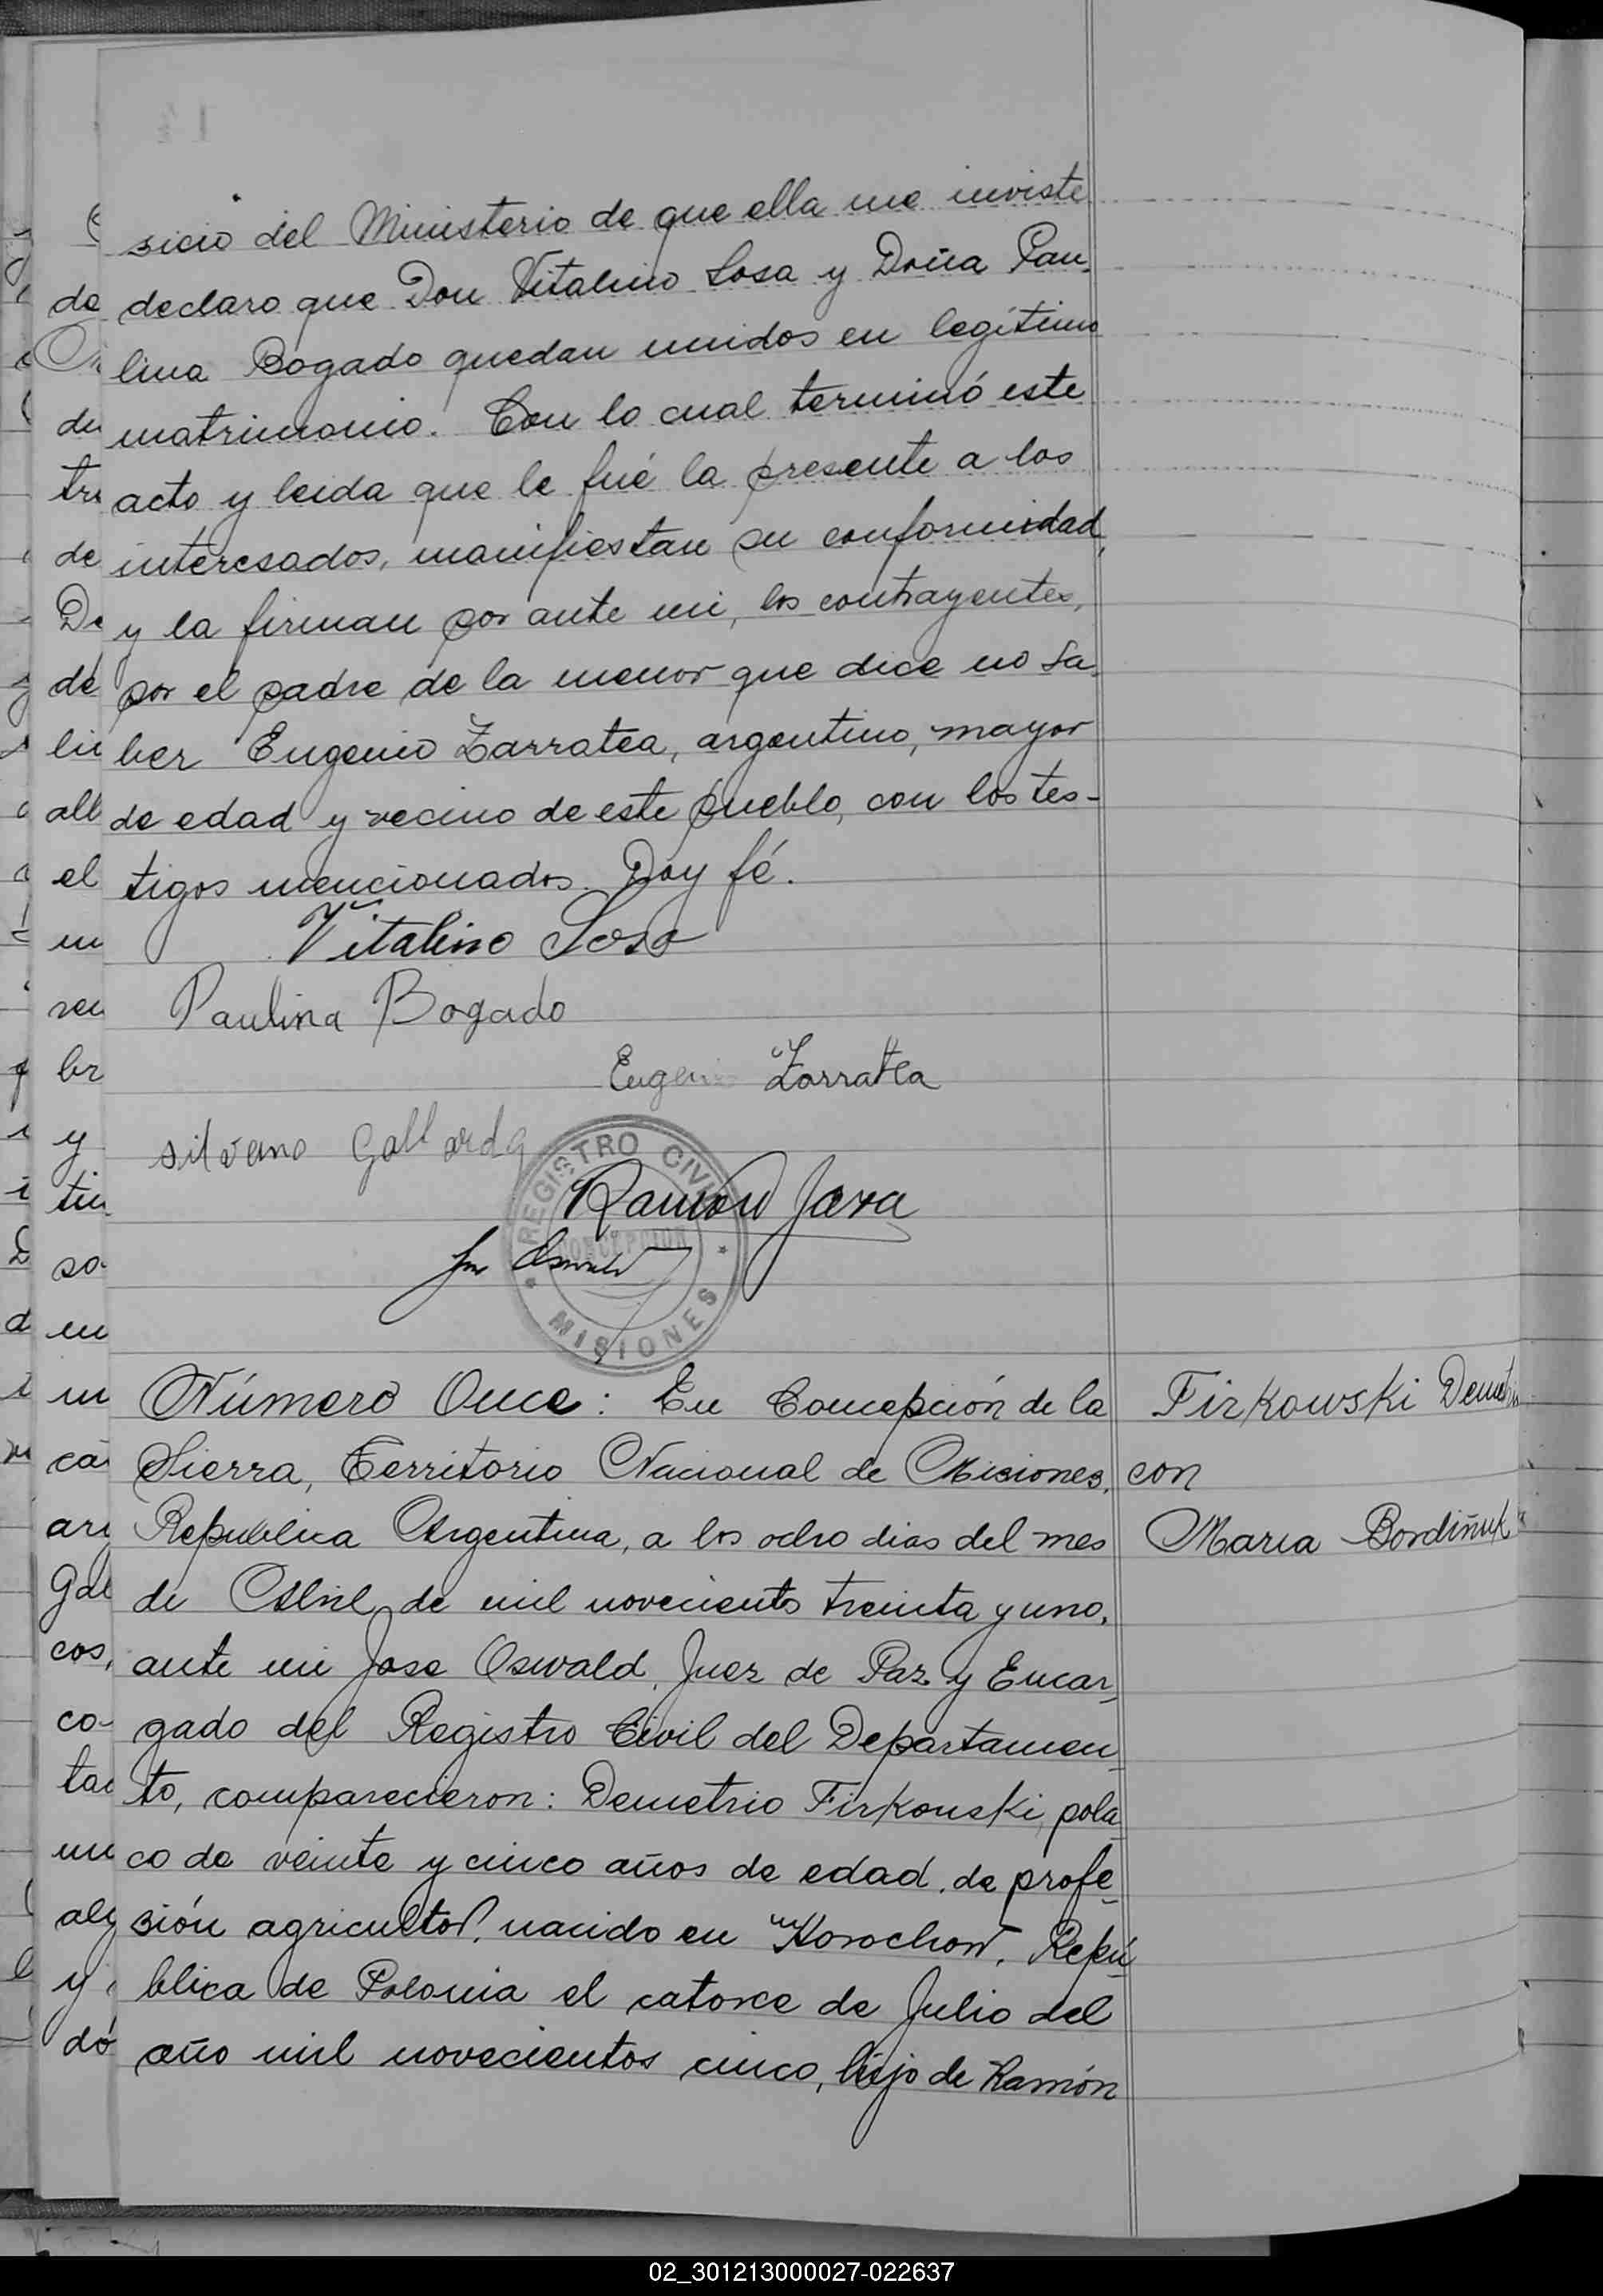 sicio del Ministerio de que ella me inviste
declaro que Don Vitalino Sosa y Doña Pau-
lina Bogado quedan unidos en legítimo
matrimonio. Con lo cual terminó este
acto y leida que le fué la presente a los
interesados, manifiestan su conformidad,
y la firman por ante mi, los contrayentes,
por el padre de la menor que dice no sa-
ber Eugenio Zarratea, argentino, mayor
de edad y vecino de este pueblo, con los tes-
tigos mencionados. Doy fé.
Vitalino Sosa
Paulina Bogado
Eugenio Zarratea
silvano Gallardo
REGISTRO CIVIL
CONCEPCION
MISIONES
Ramon Jara
Jose Oswald
Número Once: En Concepción de la
Sierra, Territorio Nacional de Misiones,
Republica Argentina, a los ocho dias del mes
de Abril de mil novecientos treinta y uno,
ante mi Jose Oswald, Juez de Paz y Encar-
gado del Registro Civil del Departamen-
to, comparecieron: Demetrio Firkouski, pola-
co de veinte y cinco años de edad, de profe-
sión agricultor, nacido en Horochow, Repú-
blica de Polonia el catorce de Julio del
año mil novecientos cinco, hijo de Ramón
Firkowski Demetrio
con
Maria Bordiñuk
02_301213000027-022637